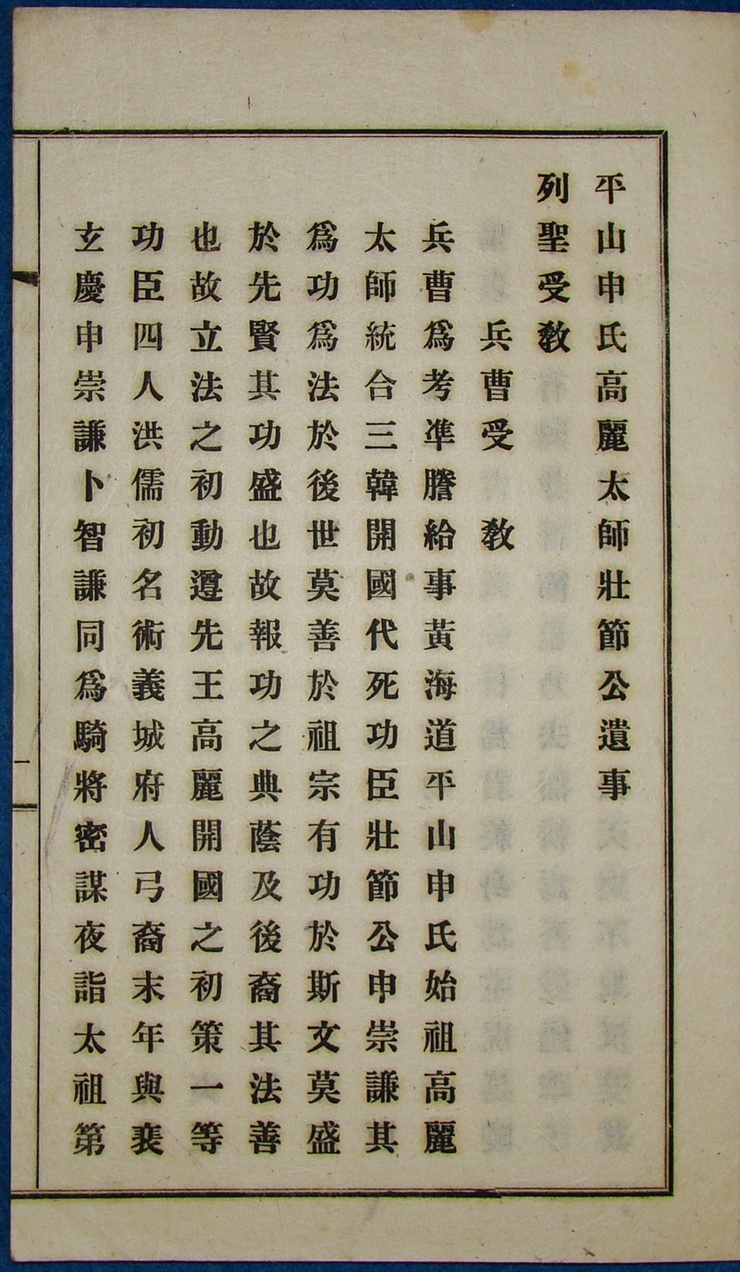 平山申氏高麗太師壯節公遺事
列聖受敎
兵曹受　敎
兵曹爲考準謄給事黃海道平山申氏始祖高麗
太師統合三韓開國代死功臣壯節公申崇謙其
爲功爲法於後世莫善於祖宗有功於斯文莫盛
於先賢其功盛也故報功之典蔭及後裔其法善
也故立法之初動遵先王高麗開國之初策一等
功臣四人洪儒初名術義城府人弓裔末年與裴
玄慶申崇謙卜智謙同爲騎將密謀夜詣太祖第